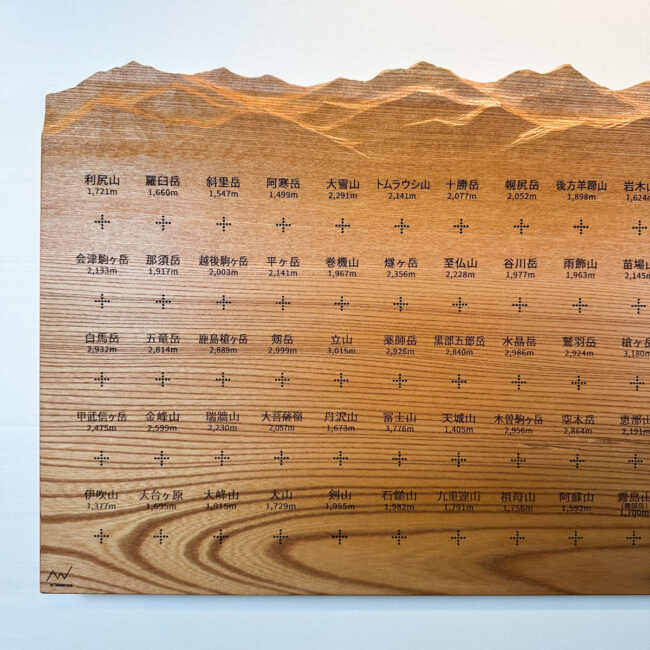 利尻山 羅臼岳 斜里岳 阿寒岳 大雪山 トムラウシ山 十勝岳 幌尻岳 後方羊蹄山 岩木山
1,721m 1,660m 1,547m 1,499m 2,291m 2,141m 2,077m 2,052m 1,898m 1,624
会津駒ヶ岳 那須岳 越後駒ヶ岳 平ヶ岳 巻機山 燧ヶ岳 至仏山 谷川岳 雨飾山 苗場山
2,133m 1,917m 2,003m 2,141m 1,967m 2,356m 2,228m 1,977m 1,963m 2,145m
白馬岳 五竜岳 鹿島槍ヶ岳 剱岳 立山 薬師岳 黒部五郎岳 水晶岳 鷲羽岳 槍ヶ
2,932m 2,814m 2,889m 2,999m 3,015m 2,926m 2,840m 2,986m 2,924m 3,180m
甲武信ヶ岳 金峰山 瑞牆山 大菩薩嶺 丹沢山 富士山 天城山 木曽駒ヶ岳 空木岳 恵那山
2,475m 2,599m 2,230m 2,057m 1,673m 3,776m 1,405m 2,956m 2,864m 2,191m
伊吹山 大台ヶ原 大峰山 大山 剣山 石鎚山 九重連山 祖母山 阿蘇山 霧島山
(韓国岳)
1,377m 1,695m 1,915m 1,729m 1,955m 1,982m 1,791m 1,756m 1,592m 1,700m